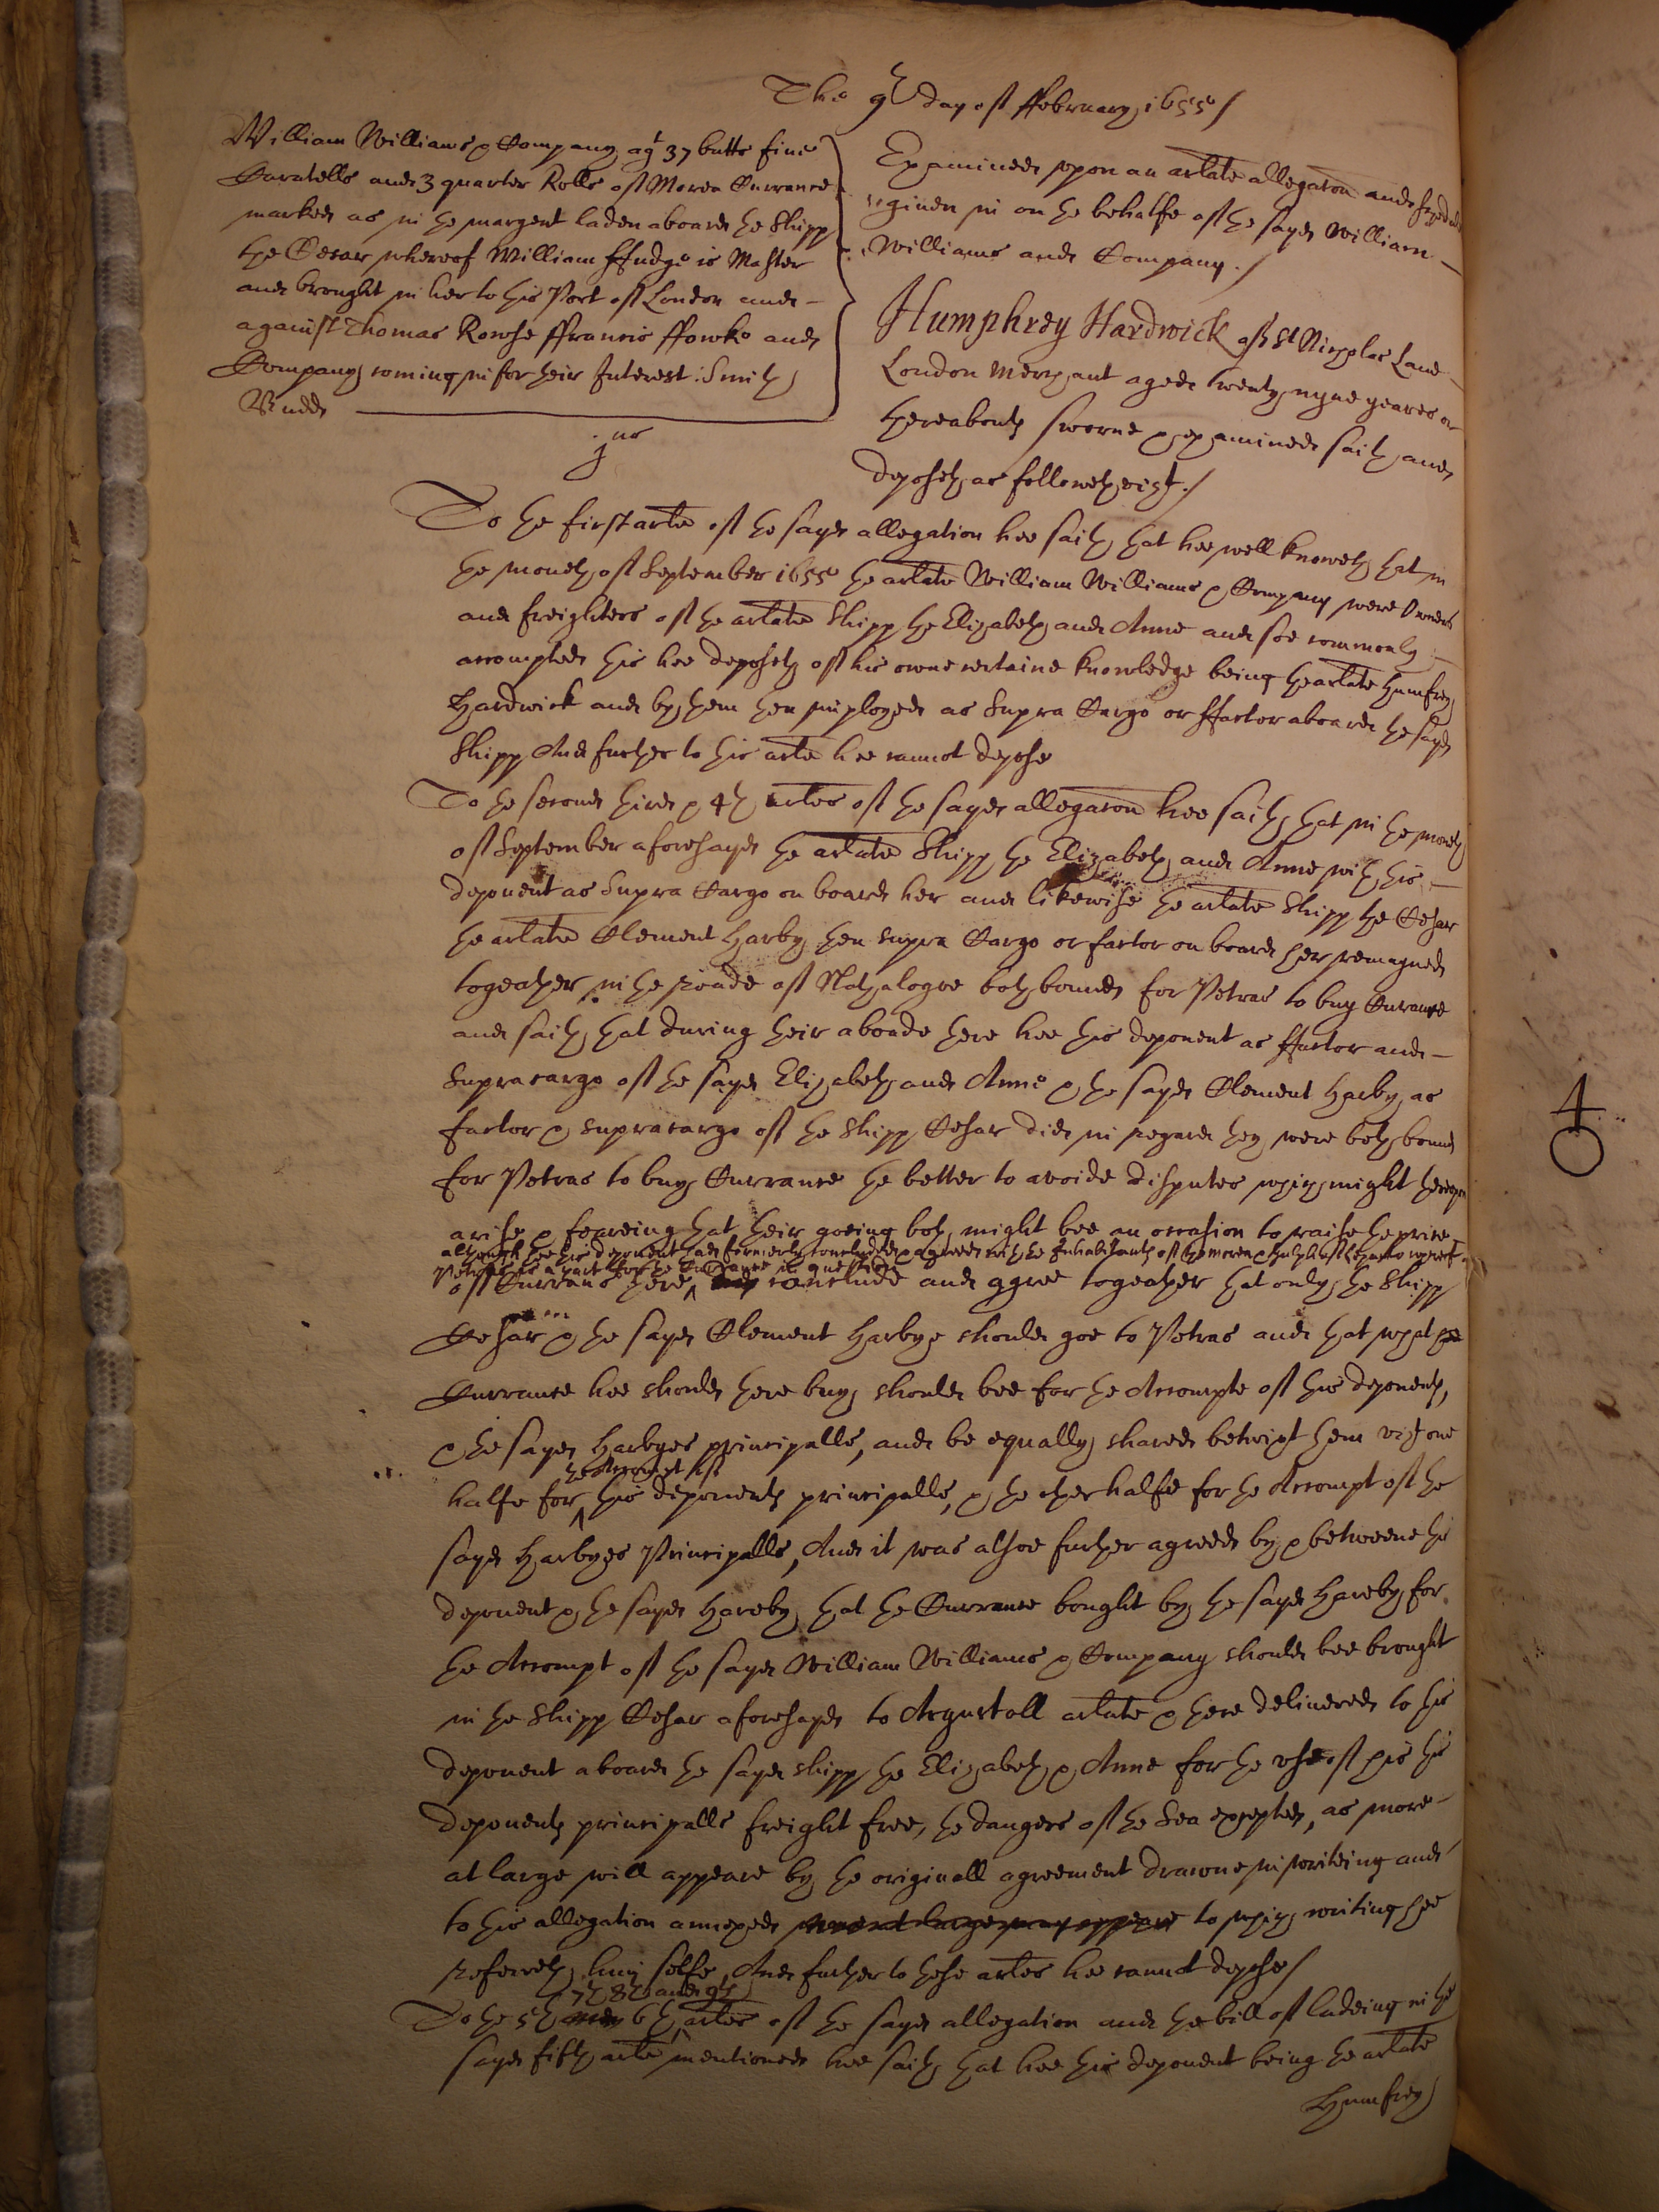 The 9th day of ffebruary 1655/
William Williams & Company agt 37 butts five
Caratells and 3 quarter Rolls of Morea Currance
marked as in the margent laden aboard the Shipp
the Cesar whereof William ffudge is Master
and brought in her to this Port of London and
against Thomas Rowse ffrancis ffowke and
Company coming in for their Interest: Smith
Budd
Examined upon an arlate allegaton and schedule
given in on the behalfe of the sayd William
Williams and Company./
Humphrey Hardwick of St Nicholas Lane
London Merchant aged twenty nyne yeares or
thereabouts sworne & examined saith and
deposeth as followeth vizt./
jus
To the first arlte of the sayd allegation hee saith that hee well knoweth that in
the moneth of September 1655 the arlate William Williams & Company were Owners
and freighters of the arlate Shipp the Elizabeth and Anne and soe commonly
accompted this hee deposeth of his owne certaine knowledge being the arlate Humfrey
Hardwick and by them then imployed as Supra Cargo or ffactor aboard the sayd
Shipp And further to this arlte hee cannot depose
To the second third & 4th arltes of the sayd allegaton hee saith that in the moneth
of September aforesayd the arlate Shipp the Elizabeth and Anne with this
deponent as Supra Cargo on board her and likewise the arlate Shipp the Cesar
the arlate Clement Harby then supra Cargo or factor on board her remayned
togeather in the roade of bothe bound for Petras to buy Currance
and saith that during their aboade there hee this deponent as ffactor and
Supracargo of the sayd Elizabeth and Anne & the sayd Clement Harby as
factor & supracargo of the Shipp Cesar did in regard they were both bound
for Petras to buy Currance the better to avoide disputes which might thereupon
arise & feareing that their goeing both might bee an occasion to raise the price
although hee this deponent had formerly concluded & agreed with the Inhabitants of the morea
Petras for the Currance in question
of Currans there, conclude and agree togeather that only the Shipp
Cesar & the sayd Clement Harbye should goe to Petras and that what
Currance hee should there buy should bee for the Accompte of this deponents,
& the sayd Harbyes principalls, and be equally shared betwixt them vizt one
the Accompt of
halfe for this deponents principalls, & the other halfe for the Accompt of the
sayd Harbyes Principalls, And it was alsoe further agreed by & betweene this
deponent & the sayd Hareby that the Currance bought by the sayd Hareby for
the Accompt of the sayd William Williams & Company should bee brought
in the Shipp Cesar aforesayd to Argustoll arlate & there delivered to this
deponent aboard the sayd shipp the Elizabeth & Anne for the use of this
deponents principalls freight free, the dangers of the Sea excepted, as more
at large will appeare by the originall agreement drawne in writeing and
to this allegation annexed more at large may appeare to which writing hee
referreth him selfe, And further to these arltes hee cannot depose/
7th 8th and 9th
To the 5th and 6th arltes of the sayd allegation and the bill of ladeing in the
sayd fifth arlte mentioned hee saith that hee this deponent being the arlate
Humfrey